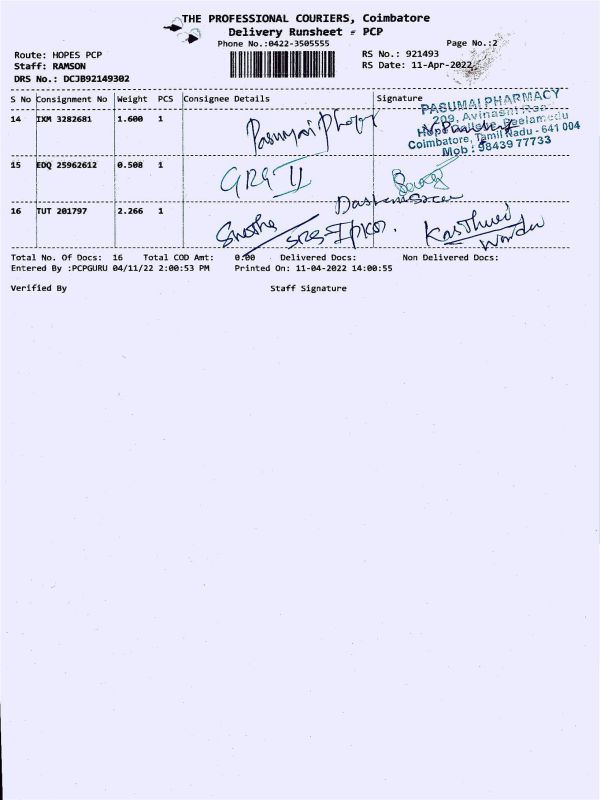 THE PROFESSIONAL COURIERS, Coimbatore
Delivery Runsheet - PCP
Phone No.:0422-3505555
Page No.:2
Route: HOPES PCP
RS No.: 921493
Staff: RAMSON
RS Date: 11-Apr-2022
DRS No.: DCJB92149302
S No Consignment No Weight PCS Consignee Details Signature
14 IXM 3282681 1.600 1
PASUMAI PHARMACY
209, Avinashi Road
Hope College, Peelamedu
Coimbatore, Tamil Nadu - 641 004
Mob : 98439 77733
15 EDQ 25962612 0.508 1 GRG II
16 TUT 201797 2.266 1
Total No. Of Docs: 16 Total COD Amt: 0.00 Delivered Docs: Non Delivered Docs:
Entered By :PCPGURU 04/11/22 2:00:53 PM Printed On: 11-04-2022 14:00:55
Verified By Staff Signature